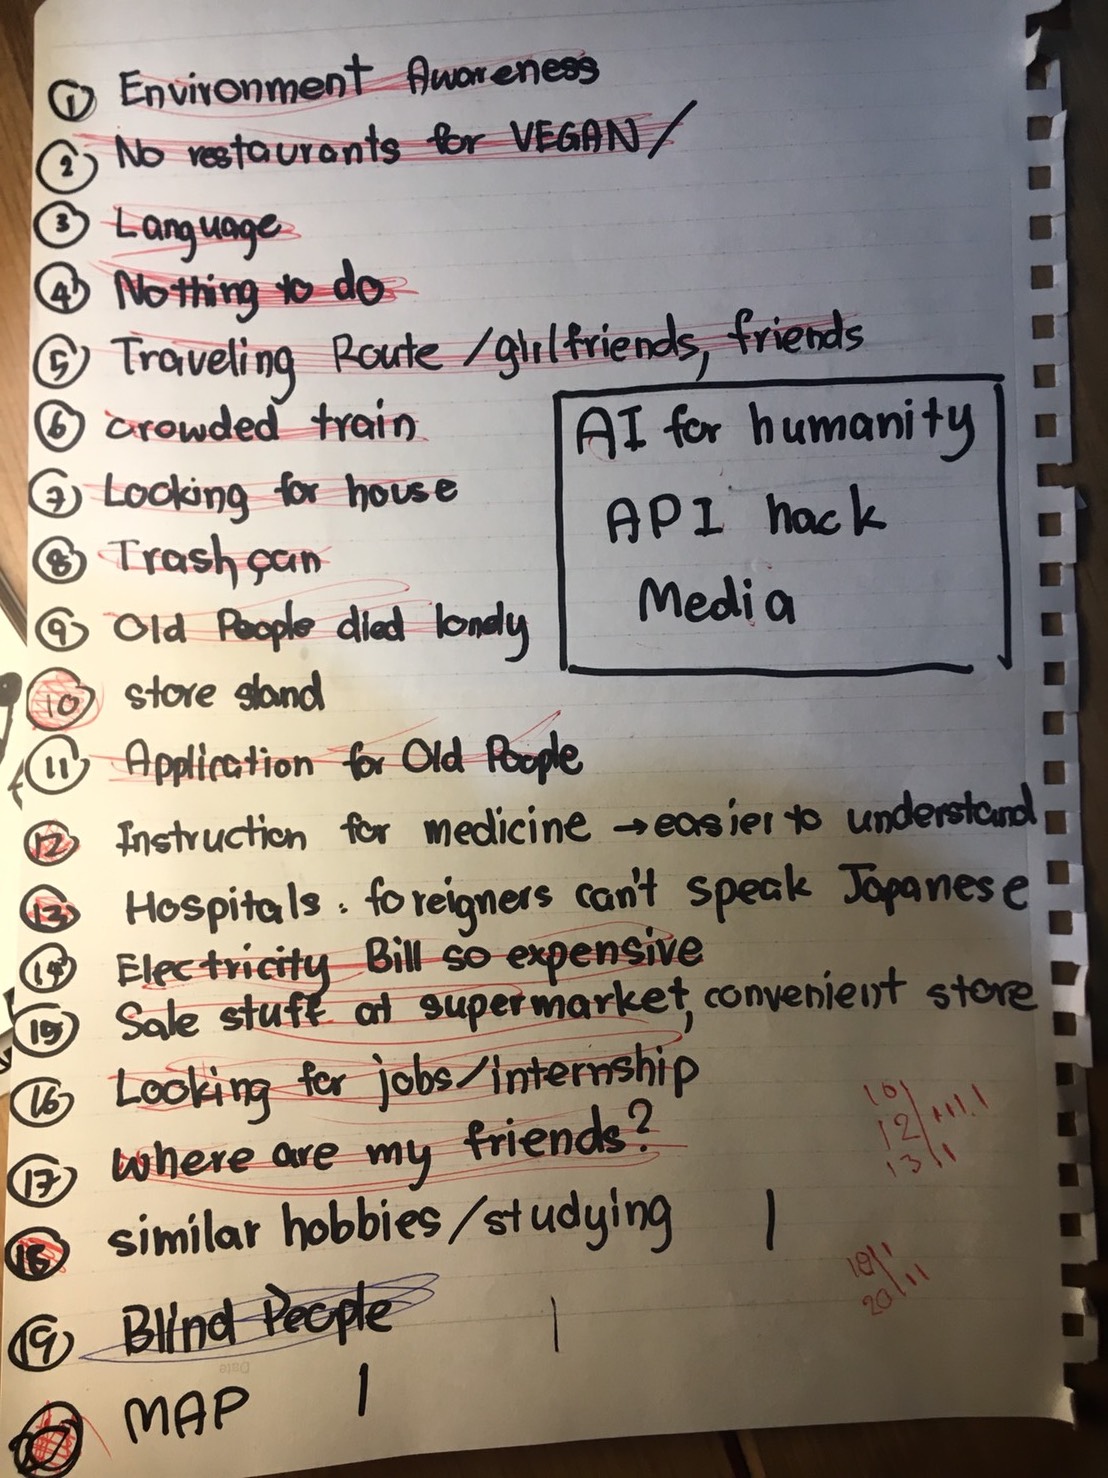 1 Environment Awareness
2 No restaurants for VEGAN /
3 Language
4 Nothing to do
5 Traveling Route /girlfriends, friends
6 crowded train
7 Looking for house
8 Trash can
9 Old People died lonely
10 store stand
11 Application for Old People
12 Instruction for medicine → easier to understand
13 Hospitals. foreigners can't speak Japanese
14 Electricity Bill so expensive
15 Sale stuff at supermarket, convenient store
16 Looking for jobs/internship
17 where are my friends?
18 similar hobbies/studying |
19 Blind People |
20 MAP |
AI for humanity
API hack
Media
10
12
13
18
20